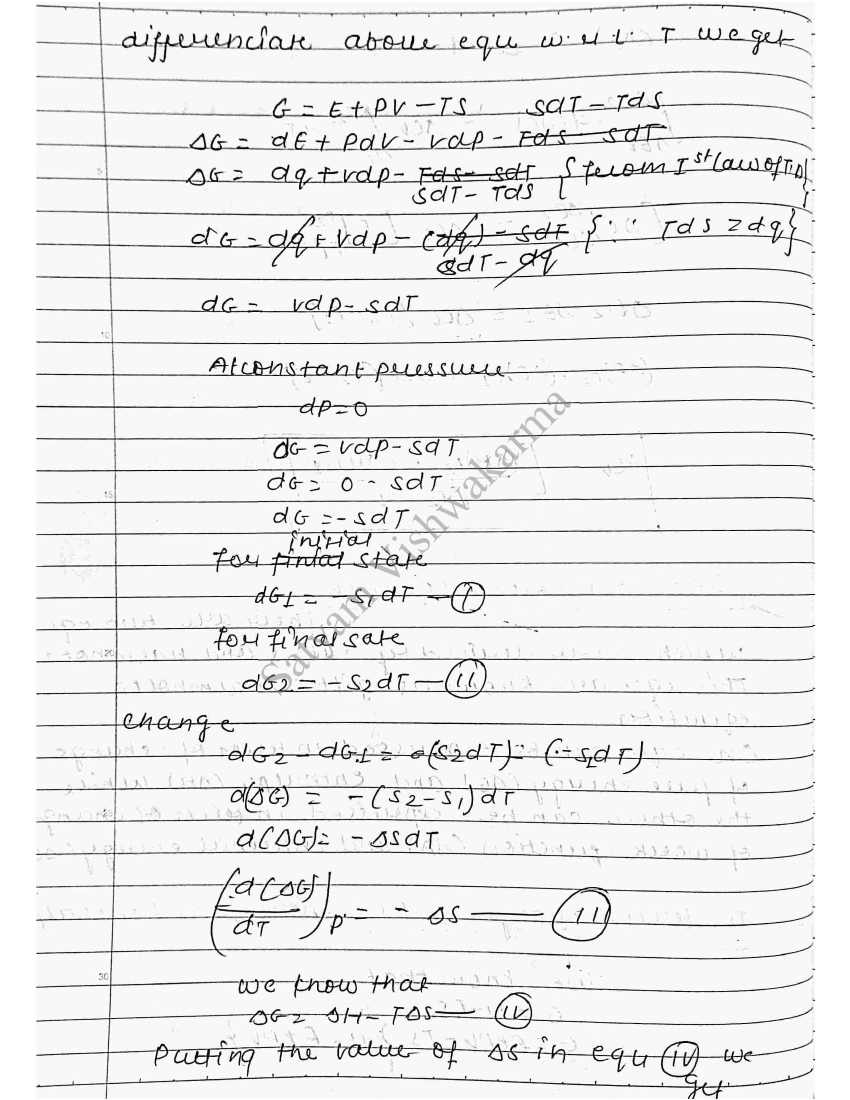 differenciate above equ w.r.t. T we get
G = E + PV - TS SdT - TdS
ΔG = dE + PdV - vdp - TdS - SdT
ΔG = dq + vdp - TdS - SdT { from Ist law of T.D }
SdT - TdS
dG = dq + vdp - (dq) - SdT { ∵ TdS = dq }
SdT - dq
dG = vdp - SdT
At constant pressure
dP = 0
dG = vdp - SdT
dG = 0 - SdT
dG = - SdT
initial
for finial state
dG1 = - S1dT - (I)
for final sate
dG2 = - S2dT - (II)
change
dG2 - dG1 = -(S2dT) - (-S1dT)
d(ΔG) = -(S2 - S1)dT
d(ΔG) = - ΔSdT
(d(ΔG)/dT)P = - ΔS - (III)
we know that
ΔG = ΔH - TΔS - (IV)
Putting the value of ΔS in equ (IV) we
get
Satyam Vishwakarma